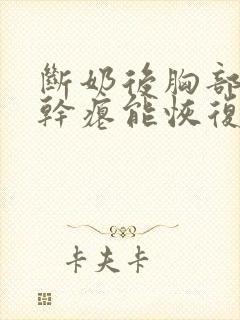 斷奶後胸部
幹癟能恢復
卡夫卡